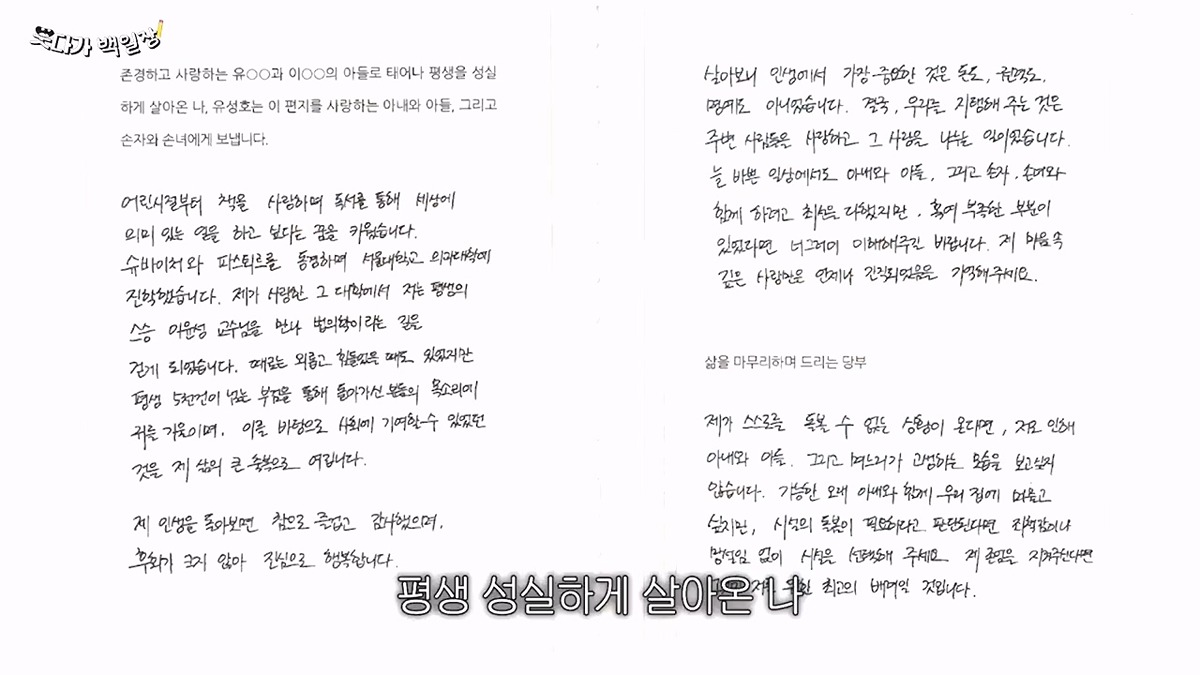 웃다가 백일장
존경하고 사랑하는 유○○과 이○○의 아들로 태어나 평생을 성실
하게 살아온 나, 유성호는 이 편지를 사랑하는 아내와 아들, 그리고
손자와 손녀에게 보냅니다.
어린시절부터 책을 사랑하며 독서를 통해 세상에
의미 있는 일을 하고 싶다는 꿈을 키웠습니다.
슈바이처와 파스퇴르를 동경하며 서울대학교 의과대학에
진학했습니다. 제가 사랑한 그 대학에서 저는 평생의
스승 이윤성 교수님을 만나 법의학이라는 길을
걷게 되었습니다. 때로는 외롭고 힘들었을 때도 있었지만
평생 5천건이 넘는 부검을 통해 돌아가신 분들의 목소리에
귀를 기울이며, 이를 바탕으로 사회에 기여할 수 있었던
것을 제 삶의 큰 축복으로 여깁니다.
제 인생을 돌아보면 참으로 즐겁고 감사했으며,
후회가 크지 않아 진심으로 행복합니다.
살아보니 인생에서 가장 중요한 것은 돈도, 권력도,
명예도 아니었습니다. 결국, 우리를 지탱해 주는 것은
주변 사람들을 사랑하고 그 사랑을 나누는 일이었습니다.
늘 바쁜 일상에서도 아내와 아들, 그리고 손자, 손녀와
함께 하려고 최선을 다했지만, 혹여 부족한 부분이
있었다면 너그러이 이해해주길 바랍니다. 제 마음 속
깊은 사랑만은 언제나 간직되었음을 기억해주세요.
삶을 마무리하며 드리는 당부
제가 스스로를 돌볼 수 없는 상황이 온다면, 저로 인해
아내와 아들, 그리고 며느리가 고생하는 모습을 보고싶지
않습니다. 가능한 오래 아내와 함께 우리 집에 머물고
싶지만, 시설의 돌봄이 필요하다고 판단된다면 죄책감이나
망설임 없이 시설을 선택해 주세요. 제 존엄을 지켜주신다면
저를 위한 최고의 배려일 것입니다.
평생 성실하게 살아온 나